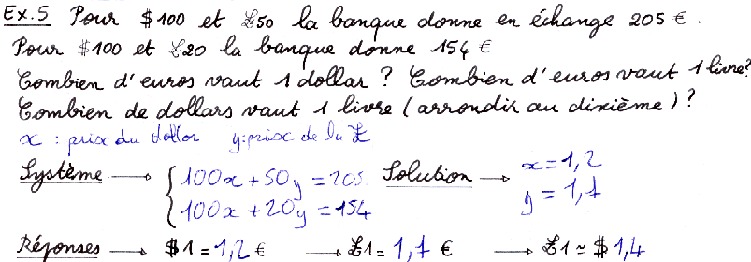 Ex.5 Pour $100 et £50 la banque donne en échange 205 €.
Pour $100 et £20 la banque donne 154 €
Combien d'euros vaut 1 dollar ? Combien d'euros vaut 1 livre?
Combien de dollars vaut 1 livre (arrondir au dixième) ?
x : prix du dollar y: prix de la £
Système → { 100x + 50y = 205 Solution → x = 1,2
100x + 20y = 154 y = 1,7
Réponses → $1 = 1,2 € → £1 = 1,7 € → £1 ≃ $1,4